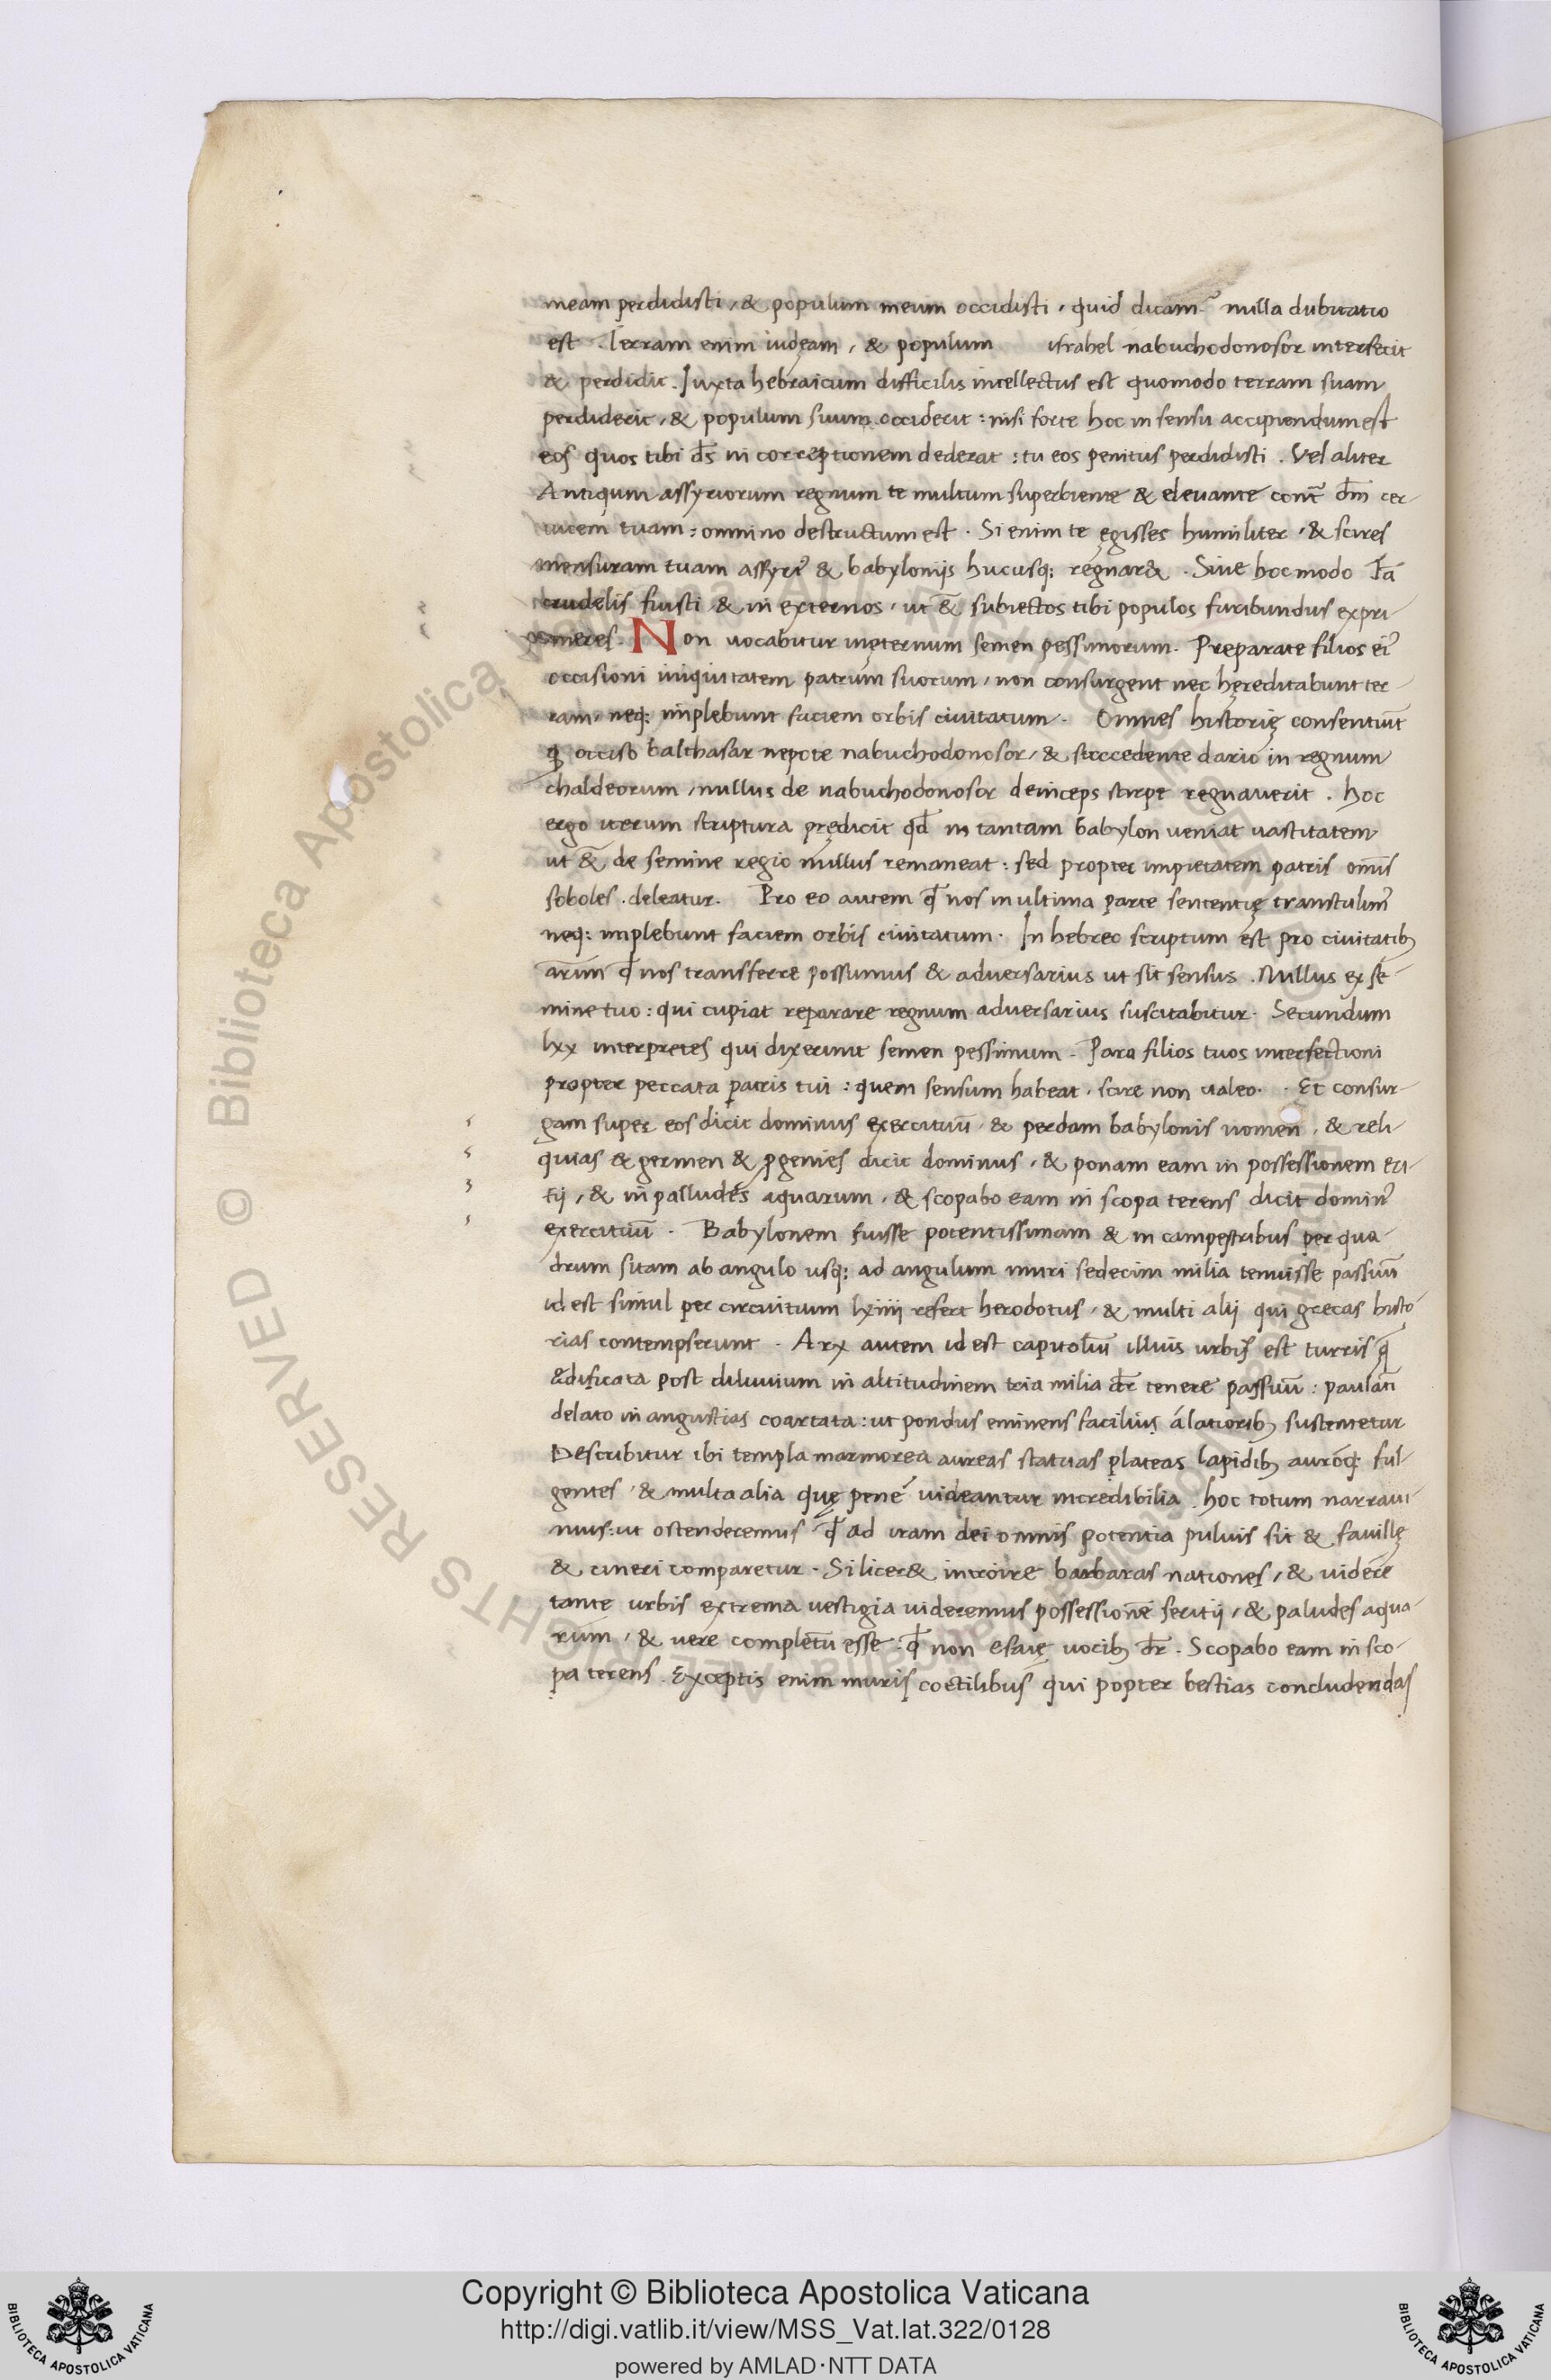 meam perdidisti, & populum meum occidisti, quid dicam? nulla dubitatio
est. Terram enim iudęam, & populum israhel nabuchodonosor interfecit
& perdidit. Juxta hebraicum difficilis intellectus est quomodo terram suam
perdiderit, & populum suum occiderit: nisi forte hoc in sensu accipiendum est
eos quos tibi d̄s in correptionem dederat: tu eos penitus perdidisti. Vel aliter
Antiqum assyriorum regnum te multum superbiente & elevante cont̄ dm̄ cer-
vicem tuam: omnino destructum est. Si enim te egisses humiliter, & scires
mensuram tuam assyri & babylonijs hucusq; regnar&. Sive hoc modo Tā
crudelis fuisti & in externos, ut &̄ subiectos tibi populos furibundus expri-
meres. Non vocabitur inęternum semen pessimorum. Preparate filios eiꝰ
occisioni iniquitatem patrum suorum, non consurgent nec hęreditabunt ter-
ram, neq; implebunt faciem orbis civitatum. Omnes historię consentiūt
ꝙ occiso balthasar nepote nabuchodonosor, & succedente dario in regnum
chaldeorum, nullus de nabuchodonosor deinceps stirpe regnaverit. hoc
ergo iterum scriptura prędicit qd̄ in tantam babylon veniat vastitatem
ut &̄ de semine regio nullus remaneat: sed propter impietatem patris om̄is
soboles. deleatur. Pro eo autem qđ nos in ultima parte sententię transtulimꝰ
neq; implebunt faciem orbis civitatum. In hebreo scriptum est pro civitatib;
arim qđ nos transferre possumus & adversarius ut sit sensus. Nullus ex se-
mine tuo: qui cupiat reparare regnum adversarius suscitabitur. Secundum
lxx interpretes qui dixerunt semen pessimum. Para filios tuos interfectioni
propter peccata patris tui: quem sensum habeat, scire non valeo. Et consur-
gam super eos dicit dominus exercituū & perdam babylonis nomen, & reli-
quias & germen & ꝓgenies dicit dominus, & ponam eam in possessionem eri-
tij, & in palludes aquarum, & scopabo eam in scopa terens dicit dominꝰ
exercituū. Babylonem fuisse potentissimam & in campestribus per qua-
drum sitam ab angulo usq; ad angulum muri sedecim milia tenuisse passuū
id est simul per circuitum lxiiii refert herodotus, & multi alij qui grecas histo-
rias contempserunt. Arx autem id est capitoliū illius urbis est turris q̄
&dificata post diluvium in altitudinem tria milia dr̄ tenere passuū: paulati
delato in angustias coartata: ut pondus eminens facilius á latiorib; sustentetur
Describitur ibi templa marmorea aureas statuas plateas lapidib; auroq; ful-
gentes, & multa alia quę pene videantur incredibilia. hoc totum narravi-
mus: ut ostenderemus qđ ad iram dei omnis potentia pulvis sit & favillę
& cineri comparetur. Si licer& introire barbaras nationes, & videre
tante urbis extrema vestigia videremus possessionē feritij, & paludes aqua-
rum, & vere completū esse qđ non esaię vocib; dr̄. Scopabo eam in sco-
pa terens. Exceptis enim muris coctilibus qui popter bestias concludendas
© Biblioteca Apostolica Vaticana ALL RIGHTS RESERVED
BIBLIOTECA APOSTOLICA VATICANA
Copyright © Biblioteca Apostolica Vaticana
http://digi.vatlib.it/view/MSS_Vat.lat.322/0128
powered by AMLAD·NTT DATA
BIBLIOTECA APOSTOLICA VATICANA